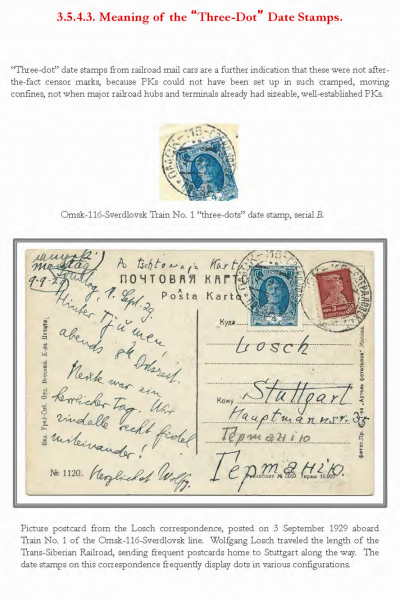 3.5.4.3. Meaning of the “Three-Dot” Date Stamps.
“Three-dot” date stamps from railroad mail cars are a further indication that these were not after-
the-fact censor marks, because PKs could not have been set up in such cramped, moving
confines, not when major railroad hubs and terminals already had sizeable, well-established PKs.
Omsk-116-Sverdlovsk Train No. 1 “three-dots” date stamp, serial B.
ПОЧТОВАЯ КАРТ
Posta Karto
1. Sept 29
Hinter Tjumen!
abends 8h Ortszeit.
Heute war ein
herrlicher Tag. Wir
sind alle recht fidel
miteinander!
Herzlichst Wolfg.
№ 1120.
Куда
Losch
Кому
Stuttgart
Hauptmannsr.
Германію
Германію.
Picture postcard from the Losch correspondence, posted on 3 September 1929 aboard
Train No. 1 of the Omsk-116-Sverdlovsk line. Wolfgang Losch traveled the length of the
Trans-Siberian Railroad, sending frequent postcards home to Stuttgart along the way. The
date stamps on this correspondence frequently display dots in various configurations.